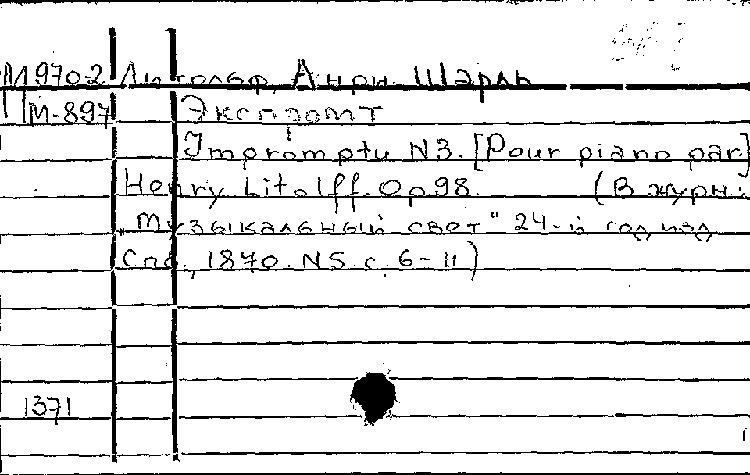 М970-2 Литольф, Анри Шарль
М-897 Экспромт
Impromptu N3. [Pour piano par]
Henry Litolff. Op98. (В журн.:
„Музыкальный свет" 24-й год изд
Спб., 1870. N5 с. 6-11)
1371